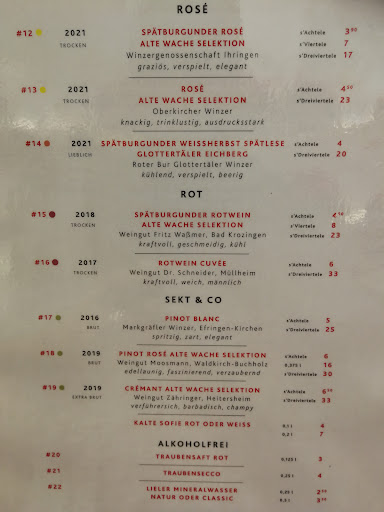 ROSÉ
#12 2021 SPÄTBURGUNDER ROSÉ s'Achtele 3⁵⁰
TROCKEN ALTE WACHE SELEKTION s'Viertele 7
Winzergenossenschaft Ihringen s'Dreiviertele 17
graziös, verspielt, elegant
#13 2021 ROSÉ s'Achtele
TROCKEN ALTE WACHE SELEKTION s'Dreiviertele 23
Oberkircher Winzer
knackig, trinklustig, ausdrucksstark
#14 2021 SPÄTBURGUNDER WEISSHERBST SPÄTLESE s'Achtele 4
LIEBLICH GLOTTERTÄLER EICHBERG s'Dreiviertele 20
Roter Bur Glottertäler Winzer
kühlend, verspielt, beerig
ROT
#15 2018 SPÄTBURGUNDER ROTWEIN s'Achtele
TROCKEN ALTE WACHE SELEKTION s'Viertele 8
Weingut Fritz Waßmer, Bad Krozingen s'Dreiviertele 23
kraftvoll, geschmeidig, kühl
#16 2017 ROTWEIN CUVÉE s'Achtele 6
TROCKEN Weingut Dr. Schneider, Müllheim s'Dreiviertele 33
kraftvoll, weich, männlich
SEKT & CO
#17 2016 PINOT BLANC s'Achtele 5
BRUT Markgräfler Winzer, Efringen-Kirchen s'Dreiviertele 25
spritzig, zart, elegant
#18 2019 PINOT ROSÉ ALTE WACHE SELEKTION s'Achtele 6
BRUT Weingut Moosmann, Waldkirch-Buchholz 0,375 l 16
edellaunig, faszinierend, verzaubernd s'Dreiviertele 30
#19 2019 CRÉMANT ALTE WACHE SELEKTION s'Achtele 6⁵⁰
EXTRA BRUT Weingut Zähringer, Heitersheim s'Dreiviertele 33
verführerisch, barbadisch, champy
KALTE SOFIE ROT ODER WEISS 0,1 l 4
0,2 l 7
ALKOHOLFREI
#20 TRAUBENSAFT ROT 3
#21 TRAUBENSECCO 4
#22 LIELER MINERALWASSER
NATUR ODER CLASSIC